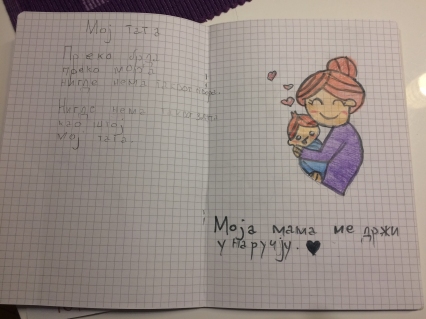 Мој тата
Преко брда
преко мора
нигде нема
Нигде нема
као што ј
мој тата
Моја мама ме држи
у наручју.